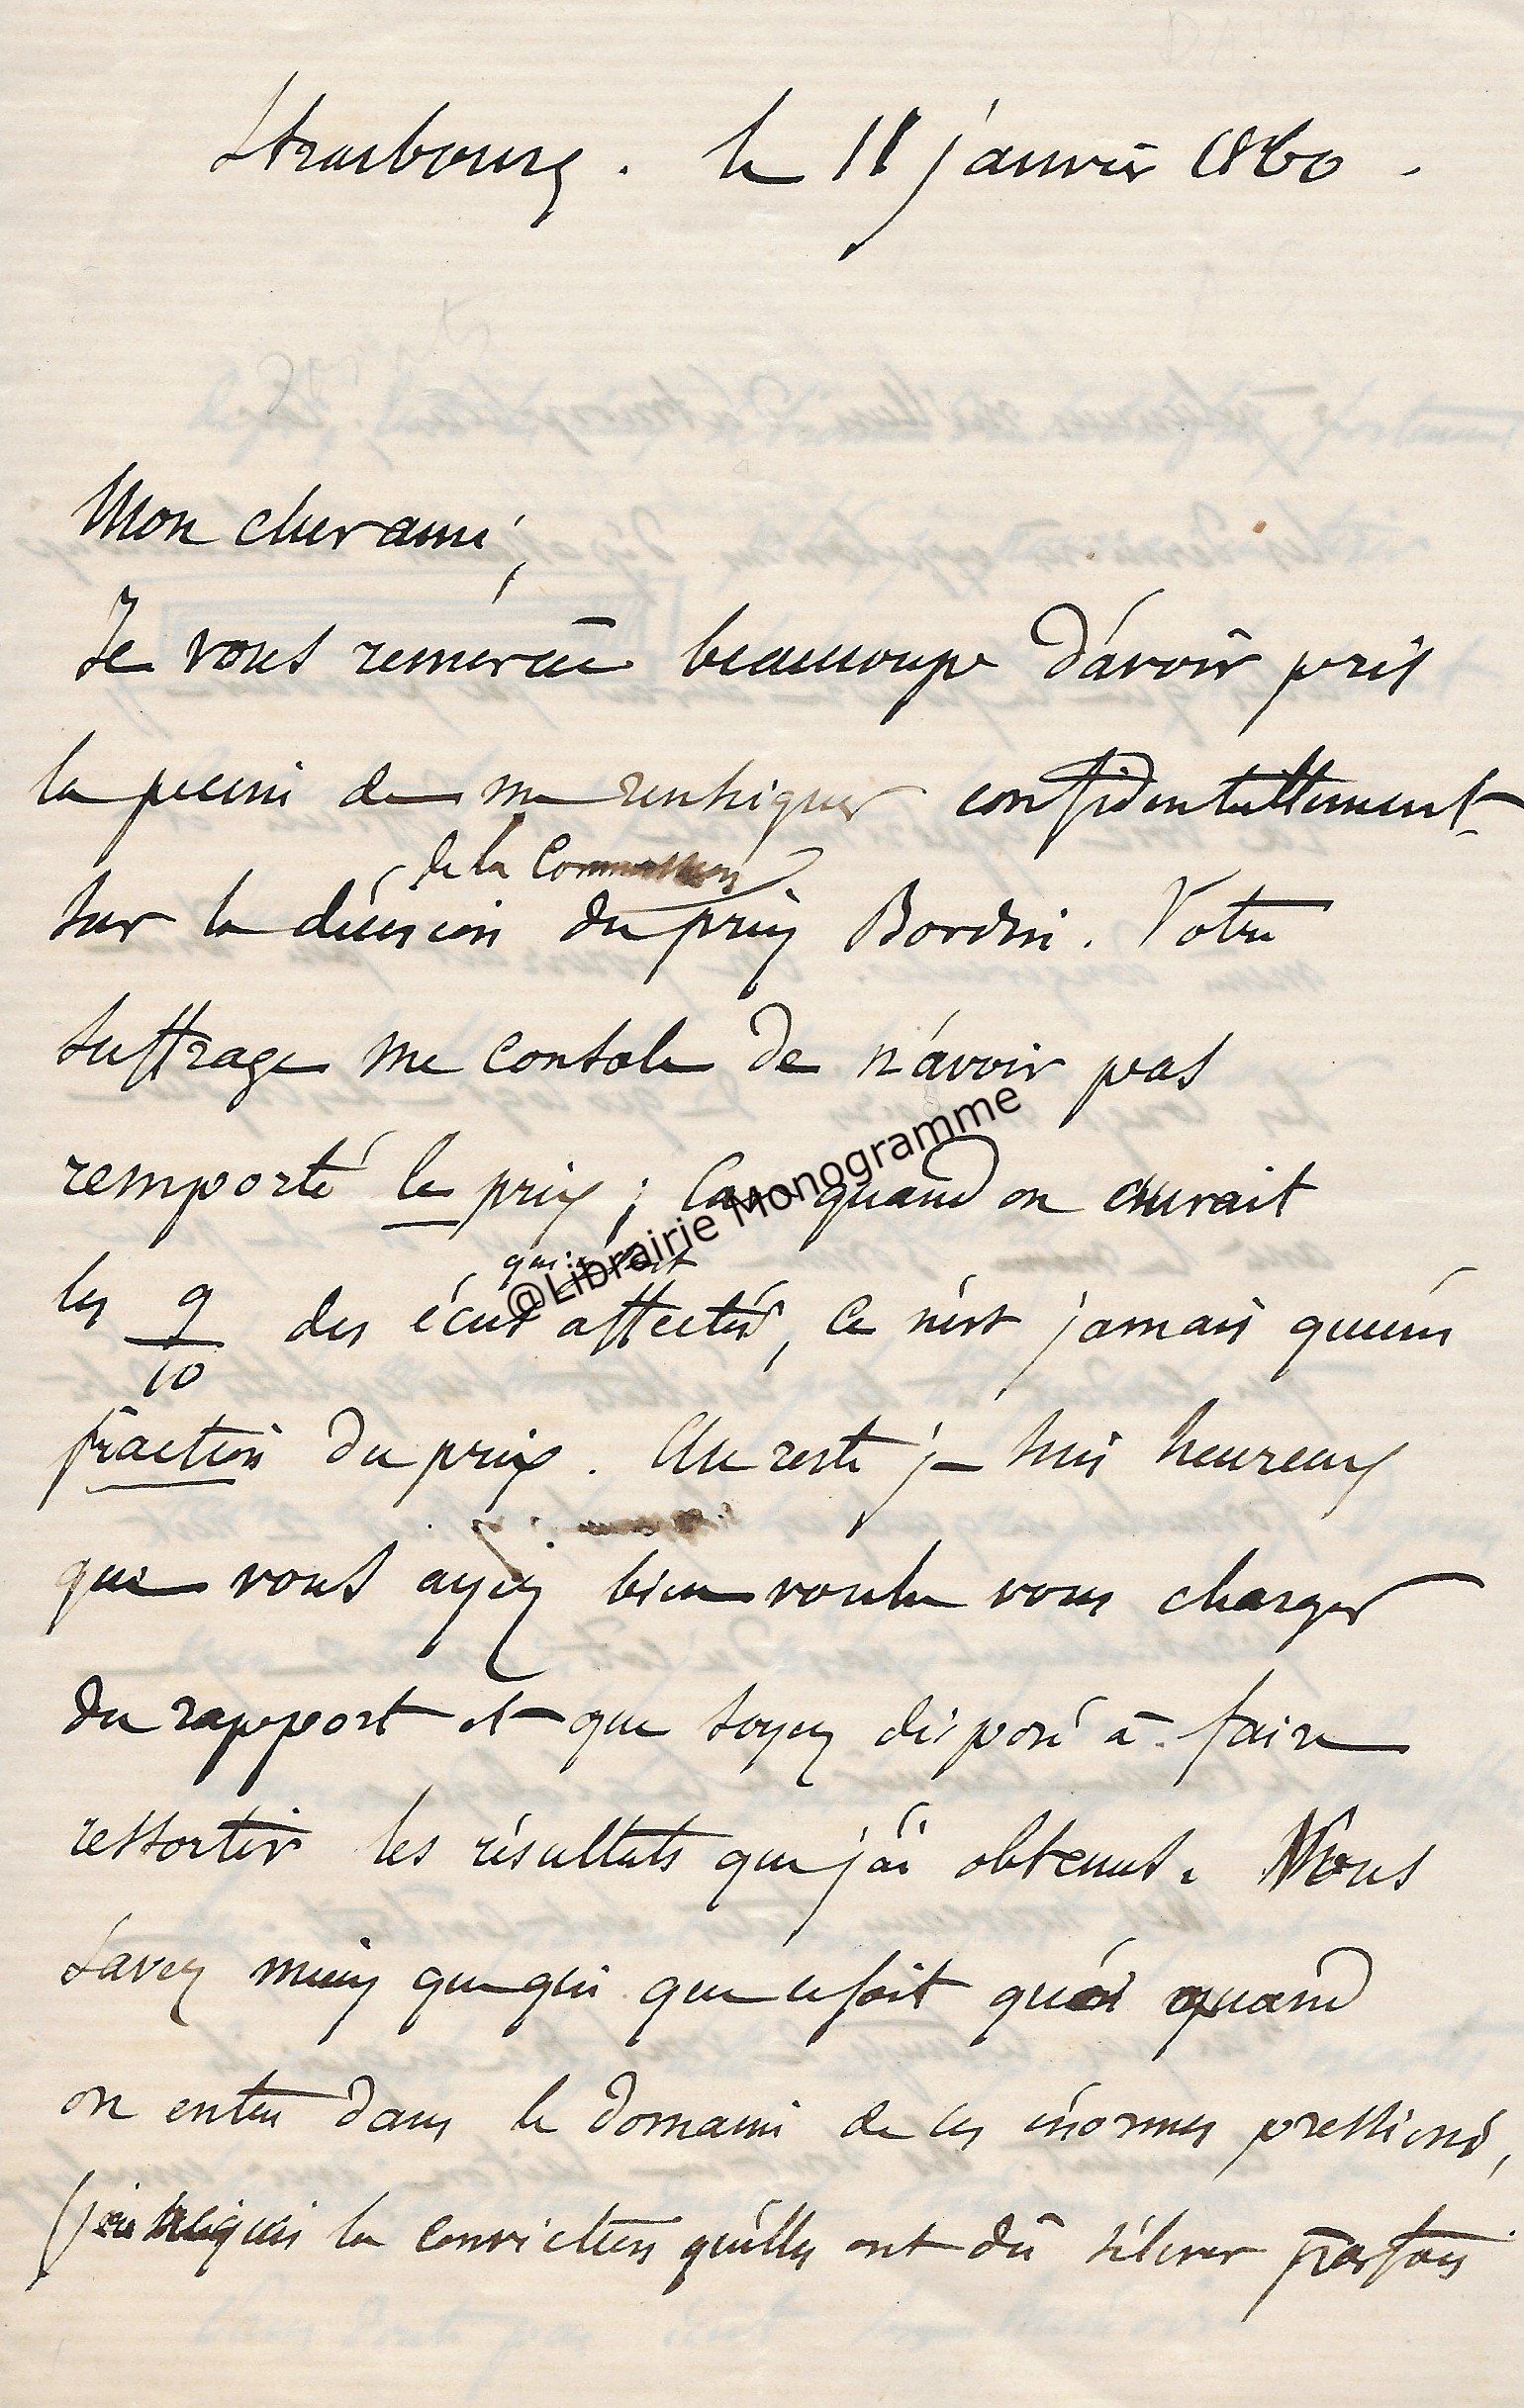 Strasbourg. le 11 janvier 1860.
Mon cher ami,
Je vous remercie beaucoup d'avoir pris
la peine de me renseigner confidentiellement
de la Commission
sur la décision du prix Bordin. Votre
suffrage me console de n'avoir pas
remporté le prix ; Car quand on aurait
qui y sont
les 9/10 des écus affectés, ce n'est jamais qu'une
fraction du prix. Au reste je suis heureux
que vous ayez bien voulu vous charger
du rapport et que soyez disposé à faire
ressortir les résultats que j'ai obtenus. Vous
savez mieux que qui que ce soit que quand
on entre dans le domaine de ces énormes pressions,
la conviction qu'elles ont dû s'élever parfois
@Librairie Monogramme